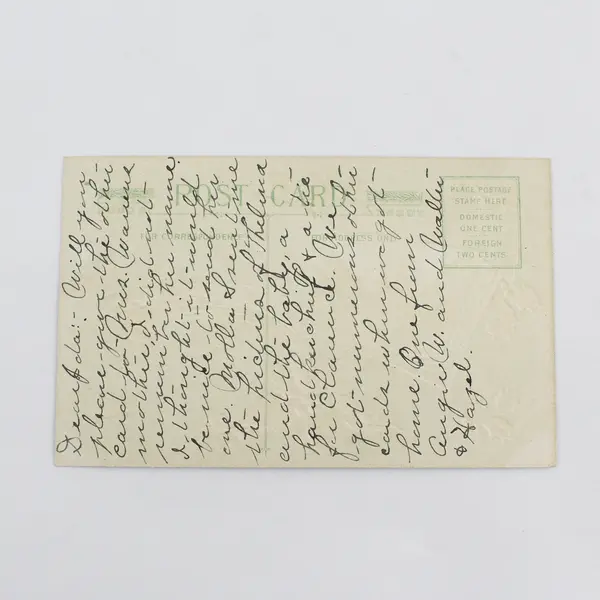 POST CARD
FOR CORRESPONDENCE
FOR ADDRESS ONLY
PLACE POSTAGE
STAMP HERE
DOMESTIC
ONE CENT
FOREIGN
TWO CENTS
Dear Ida:- Will you
please give the other
card to Chris Warne
mother, I did not
remember her name.
I thought it would
be nice to send her
one. Molla & received the
the picture of Thelma
and the baby, a
handkerchief & a tie
for Clarence. We
got numerous other
cards when we got
home One from
Angie W. and Walter
& Hazel.